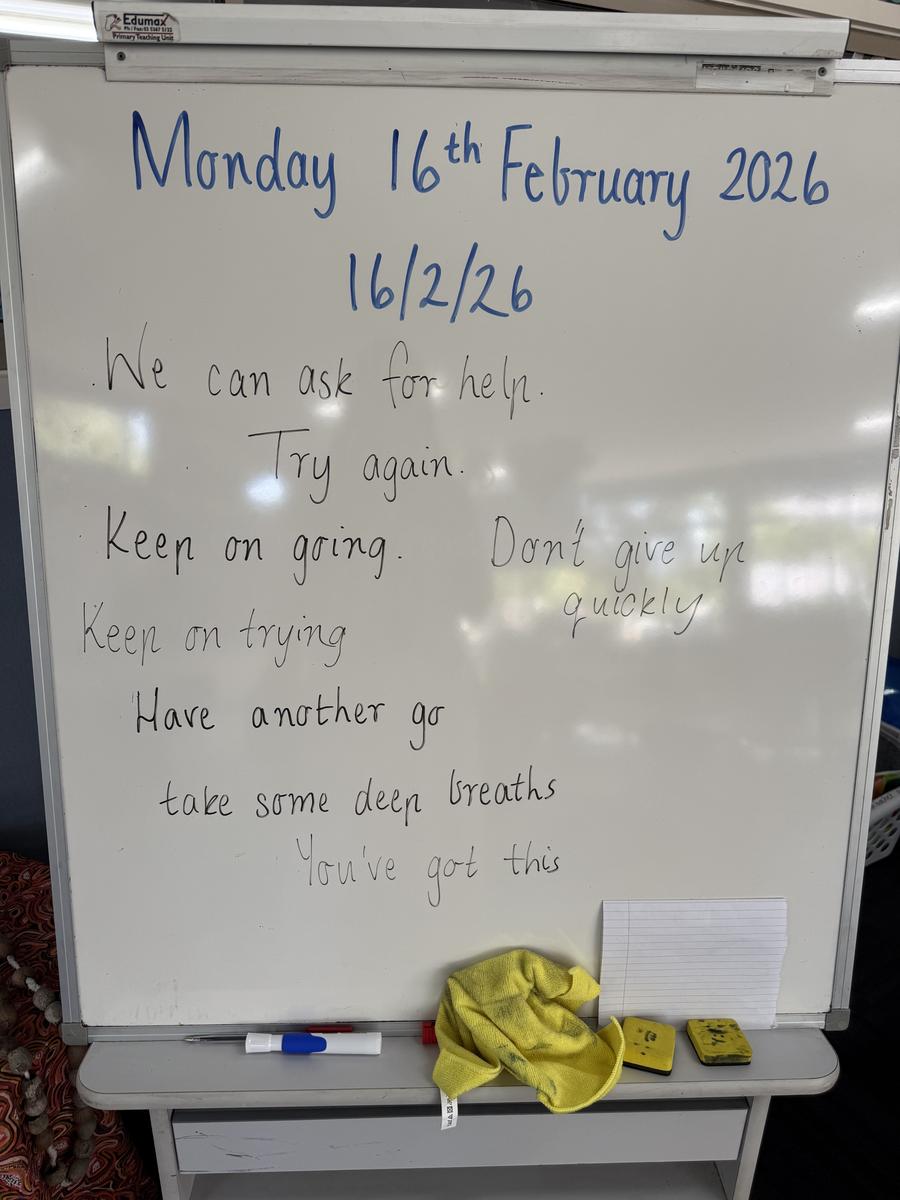 Edumax
Primary Teaching Unit
Monday 16th February 2026
16/2/26
We can ask for help.
Try again.
Keep on going.
Don't give up
quickly
Keep on trying
Have another go
take some deep breaths
You've got this